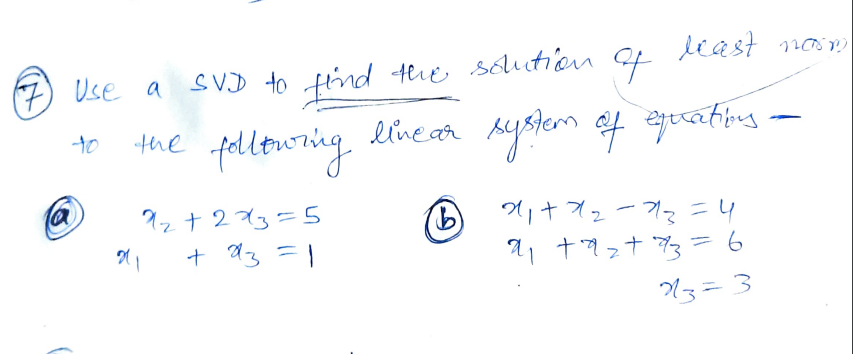 ⑦ Use a SVD to find the solution of least norm
to the following linear system of equations -
ⓐ x₂ + 2x₃ = 5
x₁ + x₃ = 1
ⓑ x₁ + x₂ - x₃ = 4
x₁ + x₂ + x₃ = 6
x₃ = 3